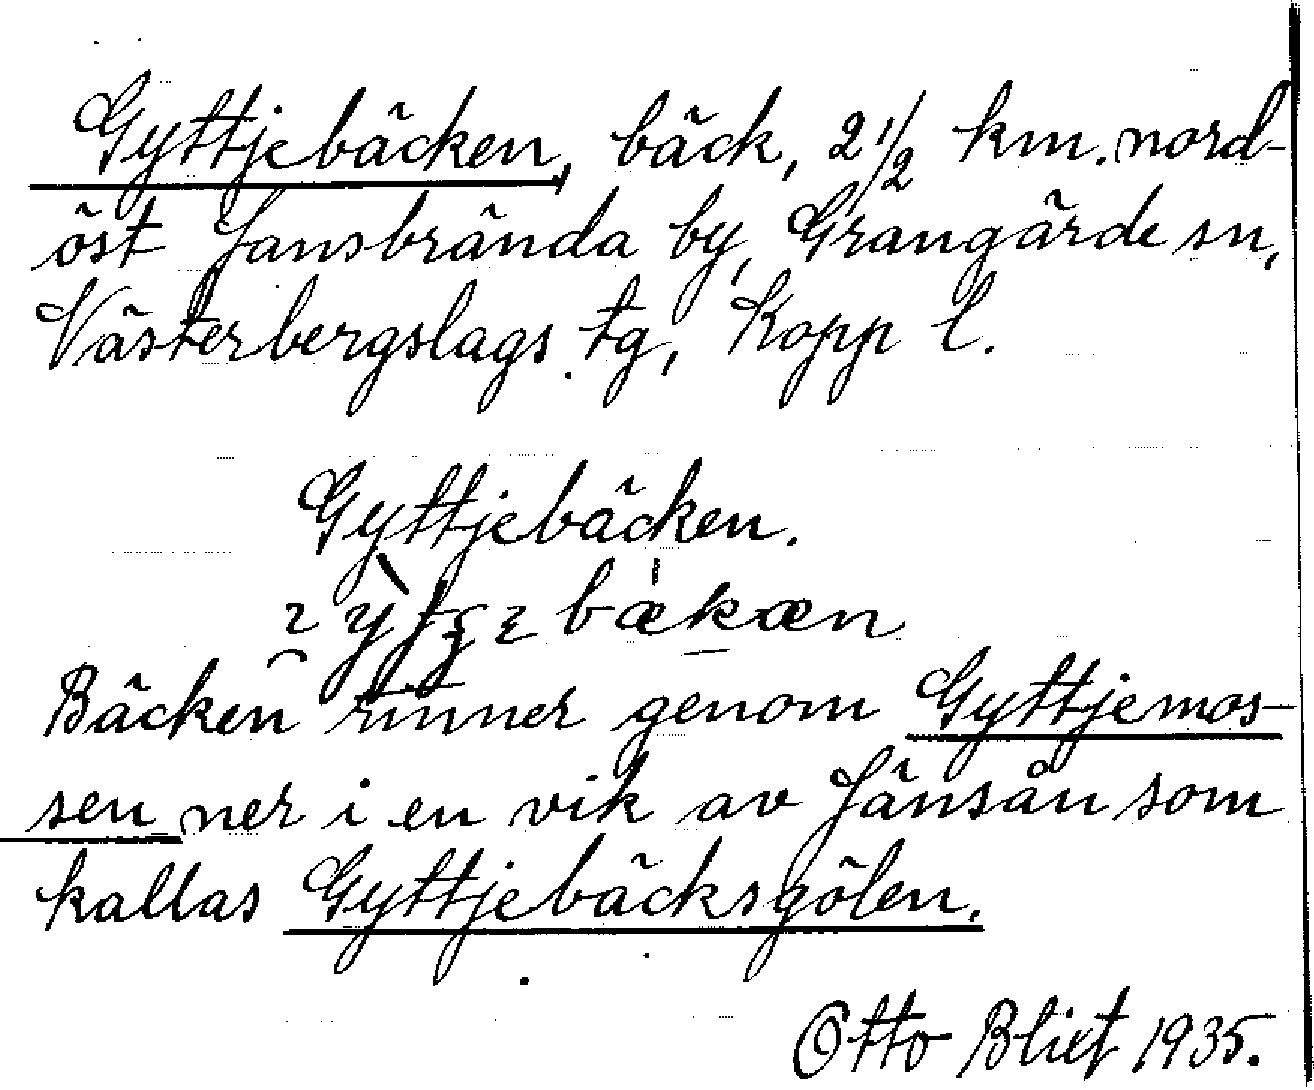 Gyttjebäcken, bäck, 2 1/2 km. nord-
öst Jansbrända by, Grangärde sn,
Västerbergslags tg, Kopp l.
Gyttjebäcken.
bækæn
Bäcken rinner genom Gyttjemos-
sen ner i en vik av Jänsån som
kallas Gyttjebäcksgölen.
Otto Bliet 1935.